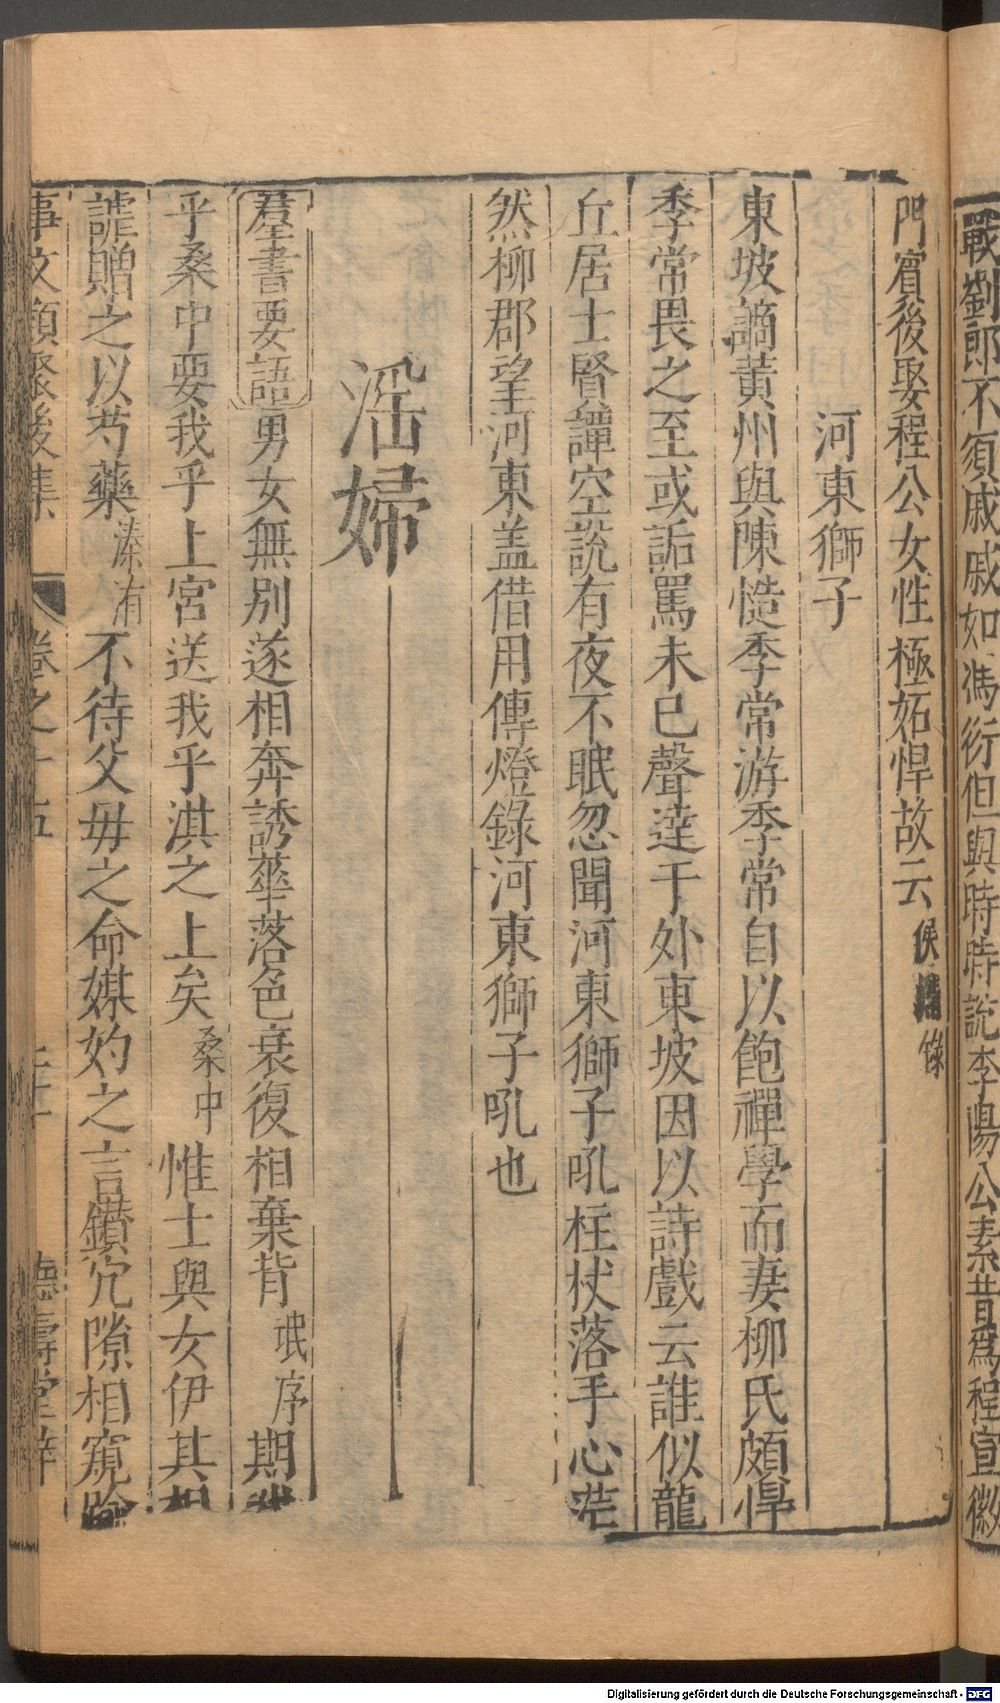 戰劉郎不須戚戚如馮衍但與時時說李陽公素昔爲程宣徽
門賓後娶程公女性極妬悍故云侯鯖錄
河東獅子
東坡謫黃州與陳慥季常游季常自以飽禪學而妻柳氏頗悍
季常畏之至或詬罵未已聲達于外東坡因以詩戲云誰似龍
丘居士賢譚空說有夜不眠忽聞河東獅子吼柱杖落手心茫
然柳郡望河東盖借用傳燈錄河東獅子吼也
淫婦
羣書要語男女無別遂相奔誘華落色衰復相棄背氓序期我
乎桑中要我乎上宮送我乎淇之上矣桑中惟士與女伊其相
謔贈之以芍藥溱洧不待父毋之命媒妁之言鑚穴隙相窺踰
事文類聚後集 卷之十五 二十 德壽堂梓
Digitalisierung gefördert durch die Deutsche Forschungsgemeinschaft - DFG